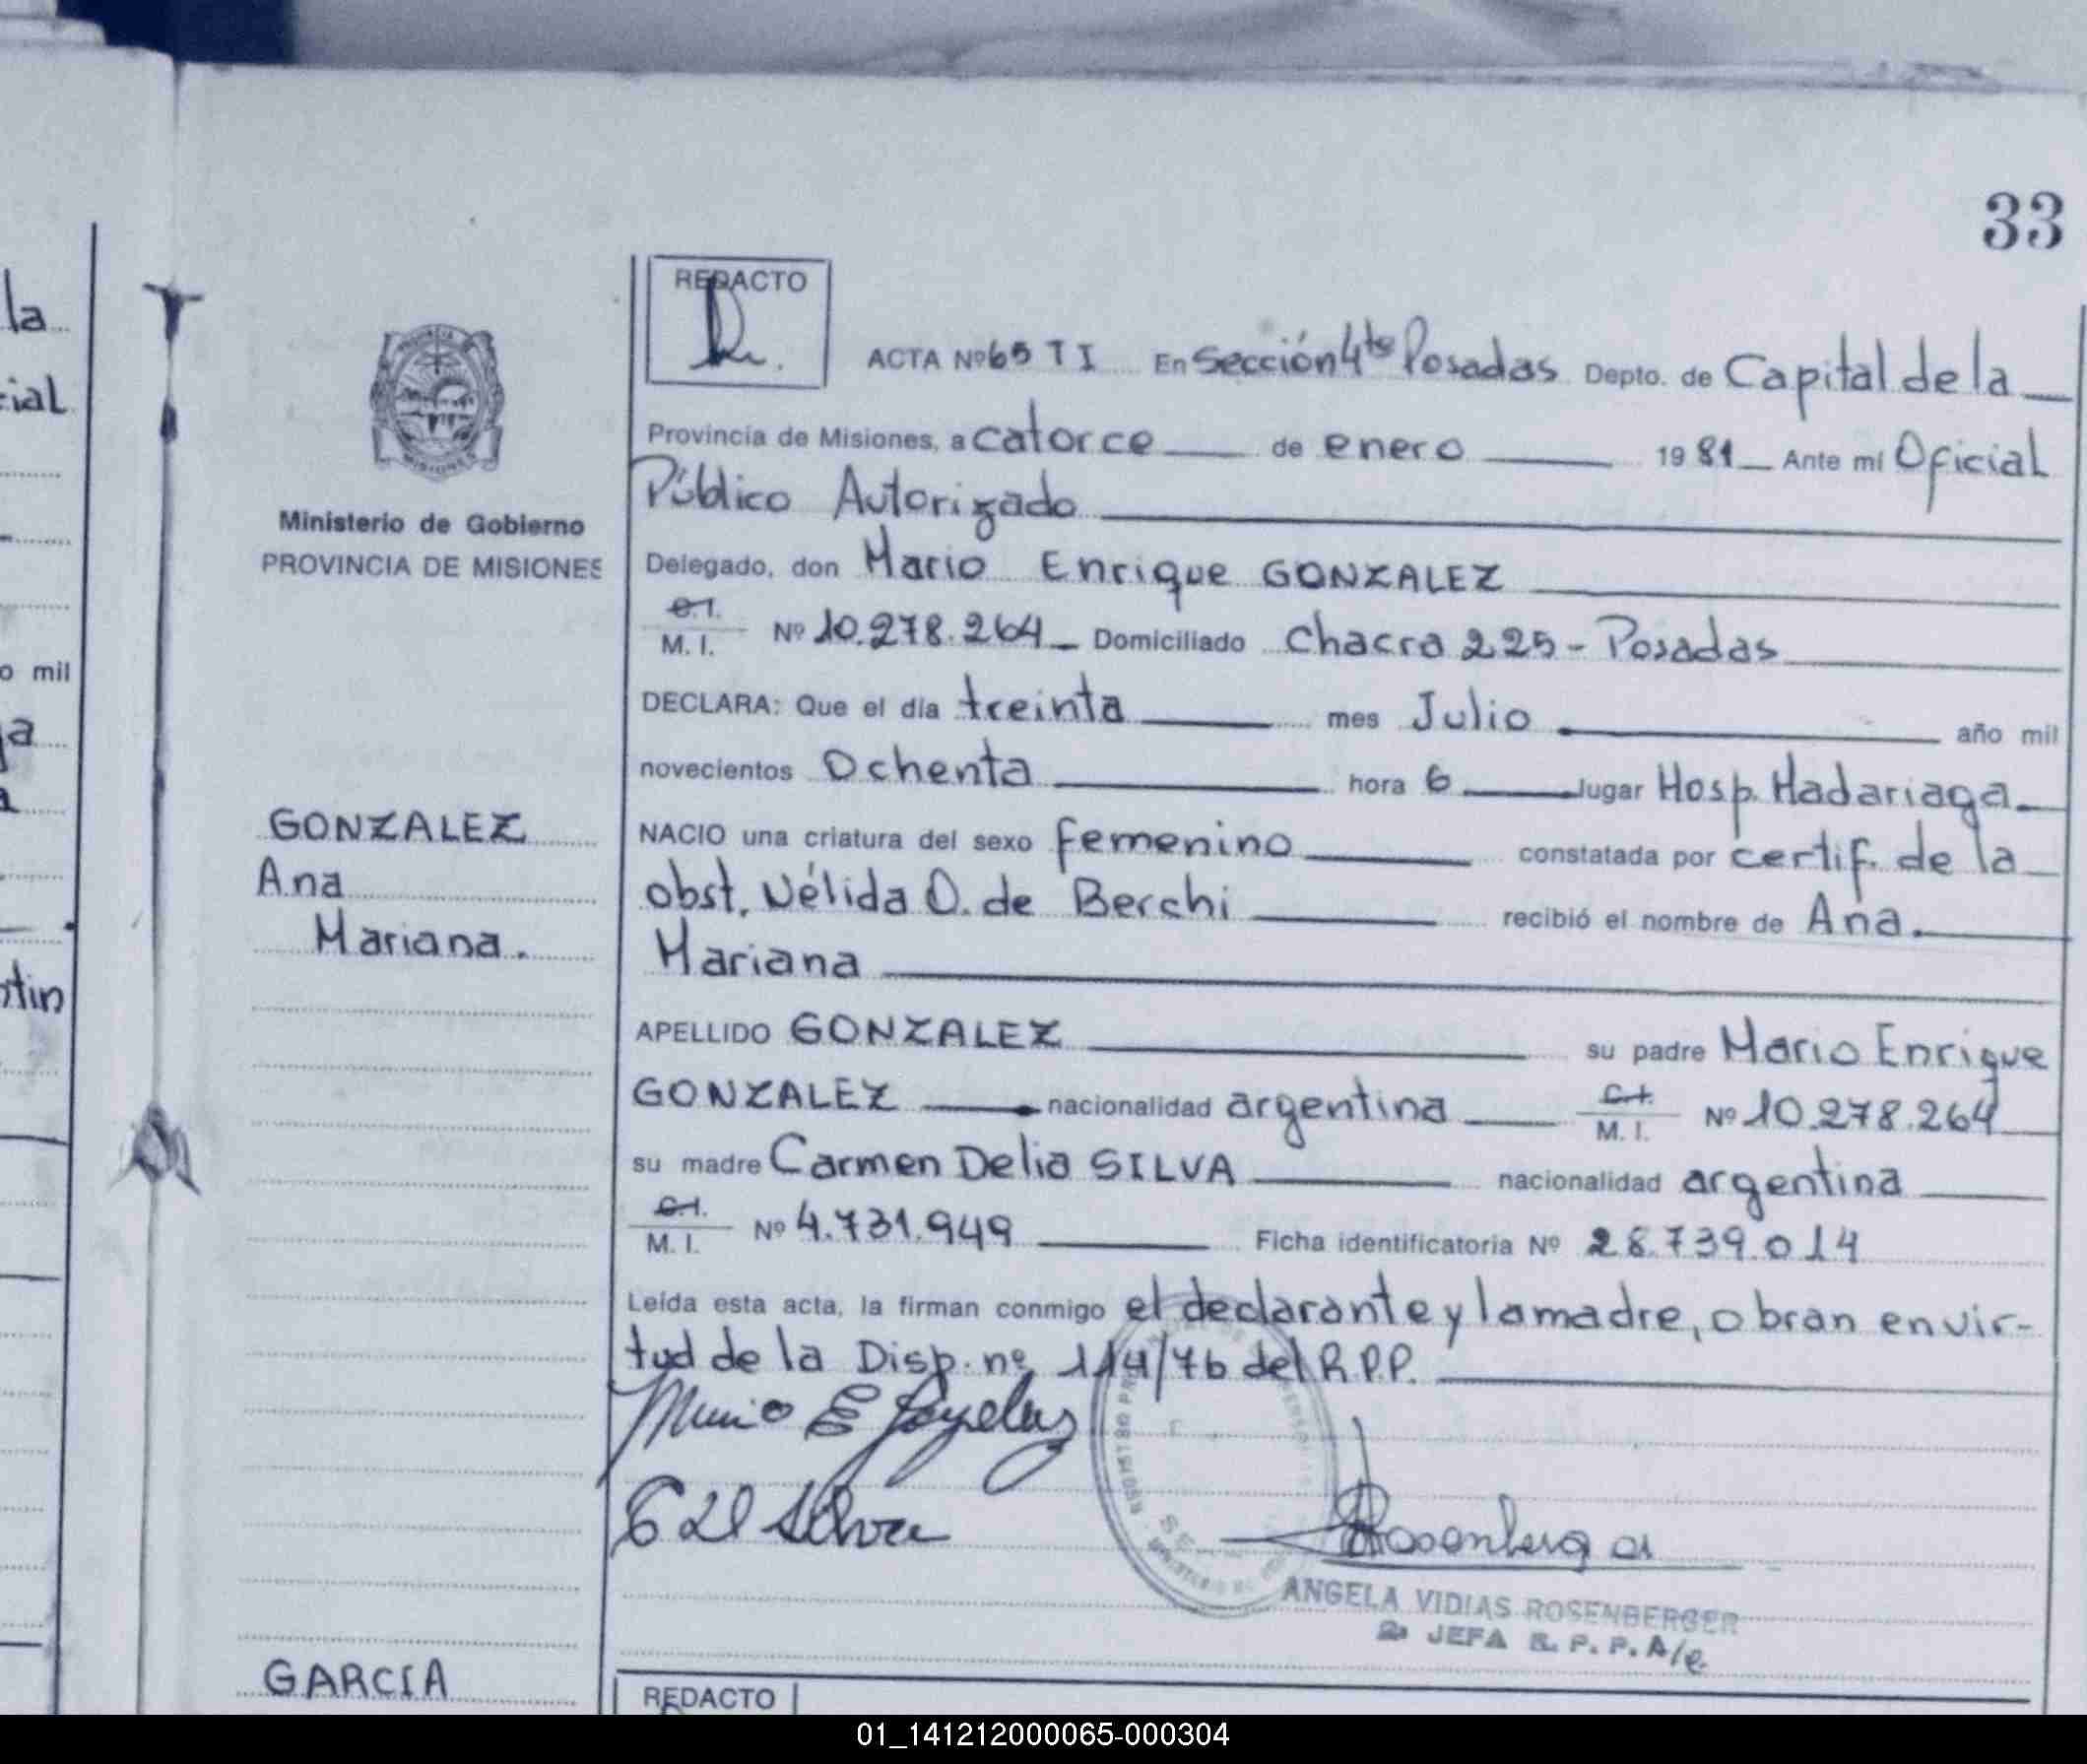 33
la
cial
o mil
a
a
tin
REDACTO
PROVINCIA
MISIONES
Ministerio de Gobierno
PROVINCIA DE MISIONES
GONZALEZ
Ana
Mariana.
GARCIA
ACTA Nº 65 T I En Sección 4ta Posadas Depto. de Capital de la
Provincia de Misiones, a catorce de enero 19 81 Ante mí Oficial
Público Autorizado
Delegado, don Mario Enrique GONZALEZ
C.I.
M. I. Nº 10.278.264 Domiciliado Chacra 225 - Posadas
DECLARA: Que el día treinta mes Julio año mil
novecientos Ochenta hora 6 lugar Hosp. Madariaga.
NACIO una criatura del sexo femenino constatada por certif. de la
obst. Nélida O. de Berchi recibió el nombre de Ana.
Mariana
APELLIDO GONZALEZ su padre Mario Enrique
GONZALEZ nacionalidad argentina C.I. M. I. Nº 10.278.264
su madre Carmen Delia SILVA nacionalidad argentina
C.I.
M. I. Nº 4.731.949 Ficha identificatoria Nº 28.739.014
Leída esta acta, la firman conmigo el declarante y la madre, obran en vir-
tud de la Disp. nº 114/76 del R.P.P.
Mario E Gonzalez
C D Silva
Rosenberger
ANGELA VIDIAS ROSENBERGER
2a JEFA R. P. P. A/c.
REDACTO
01_141212000065-000304